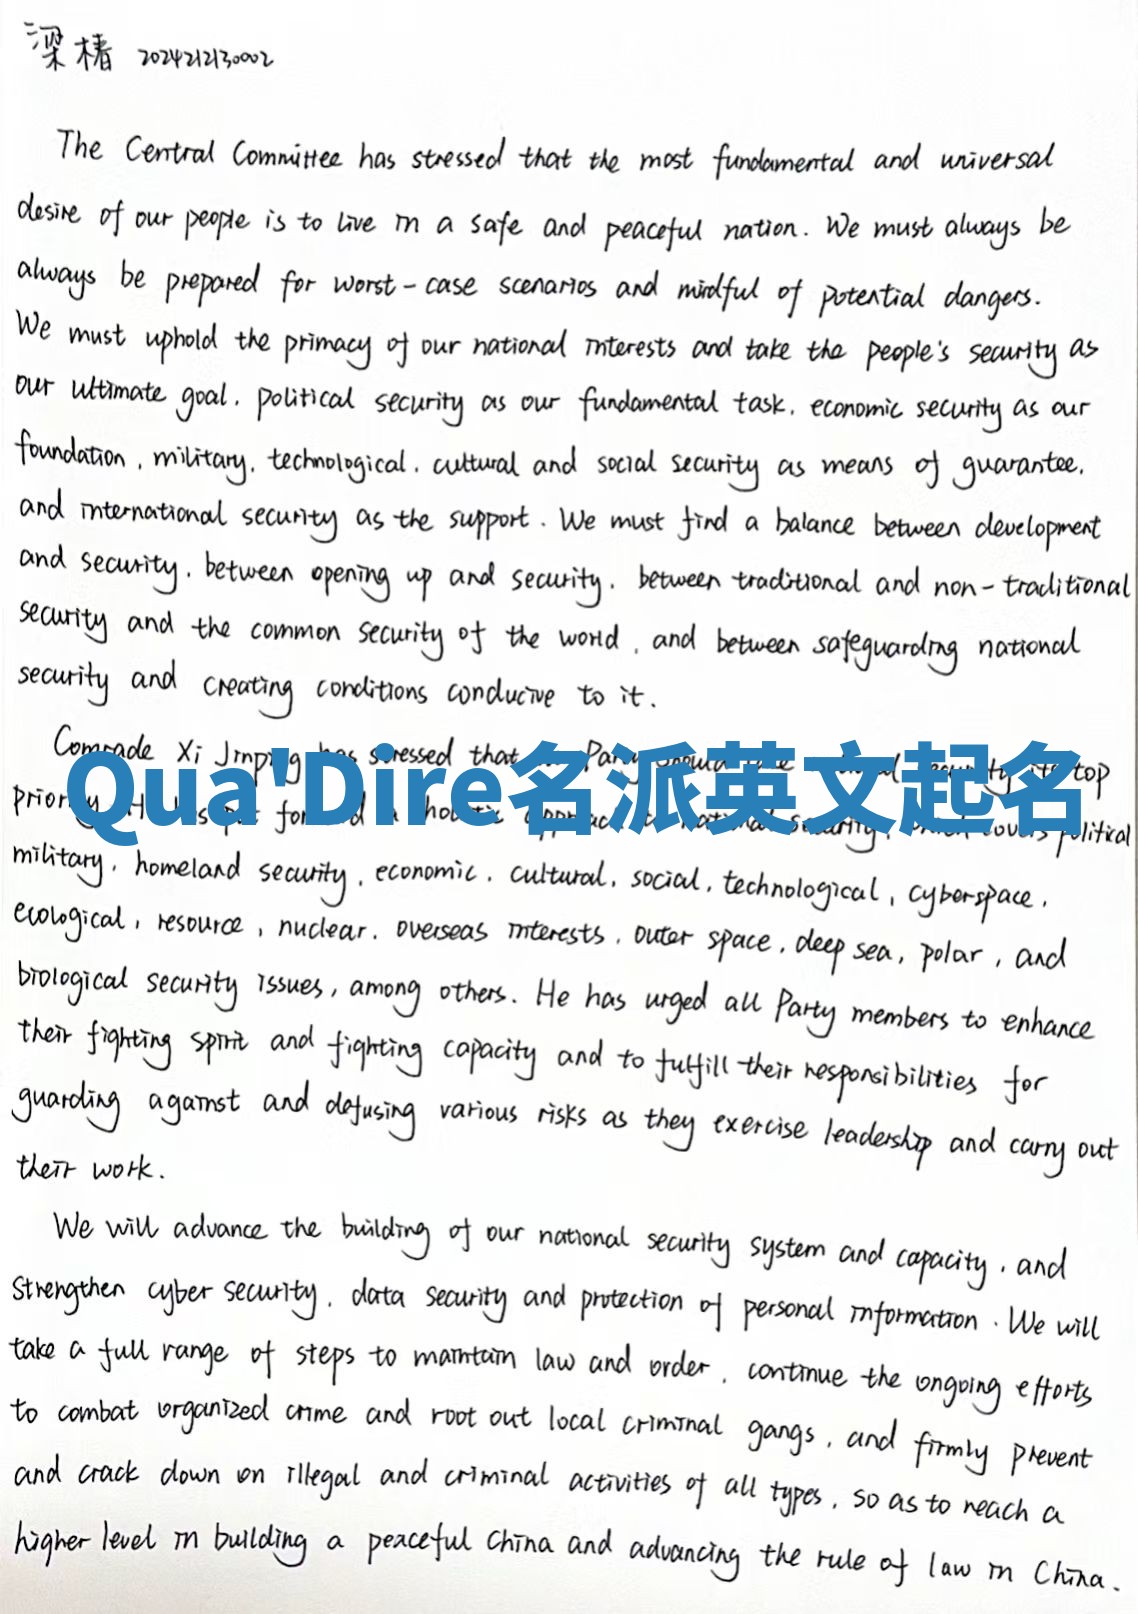 梁椿 2024212130002
The Central Committee has stressed that the most fundamental and universal
desire of our people is to live in a safe and peaceful nation. We must always be
always be prepared for worst-case scenarios and mindful of potential dangers.
We must uphold the primacy of our national interests and take the people's security as
our ultimate goal, political security as our fundamental task, economic security as our
foundation, military, technological, cultural and social security as means of guarantee,
and international security as the support. We must find a balance between development
and security, between opening up and security, between traditional and non-traditional
security and the common security of the world, and between safeguarding national
security and creating conditions conducive to it.
Comrade Xi Jinping has stressed that Party should security its top
Qua'Dire名派英文起名
priority. He has put forward a holistic approach to national security, which covers political
military, homeland security, economic, cultural, social, technological, cyberspace,
ecological, resource, nuclear, overseas interests, outer space, deep sea, polar, and
biological security issues, among others. He has urged all Party members to enhance
their fighting spirit and fighting capacity and to fulfill their responsibilities for
guarding against and defusing various risks as they exercise leadership and carry out
their work.
We will advance the building of our national security system and capacity, and
strengthen cyber security, data security and protection of personal information. We will
take a full range of steps to maintain law and order, continue the ongoing efforts
to combat organized crime and root out local criminal gangs, and firmly prevent
and crack down on illegal and criminal activities of all types, so as to reach a
higher level in building a peaceful China and advancing the rule of law in China.